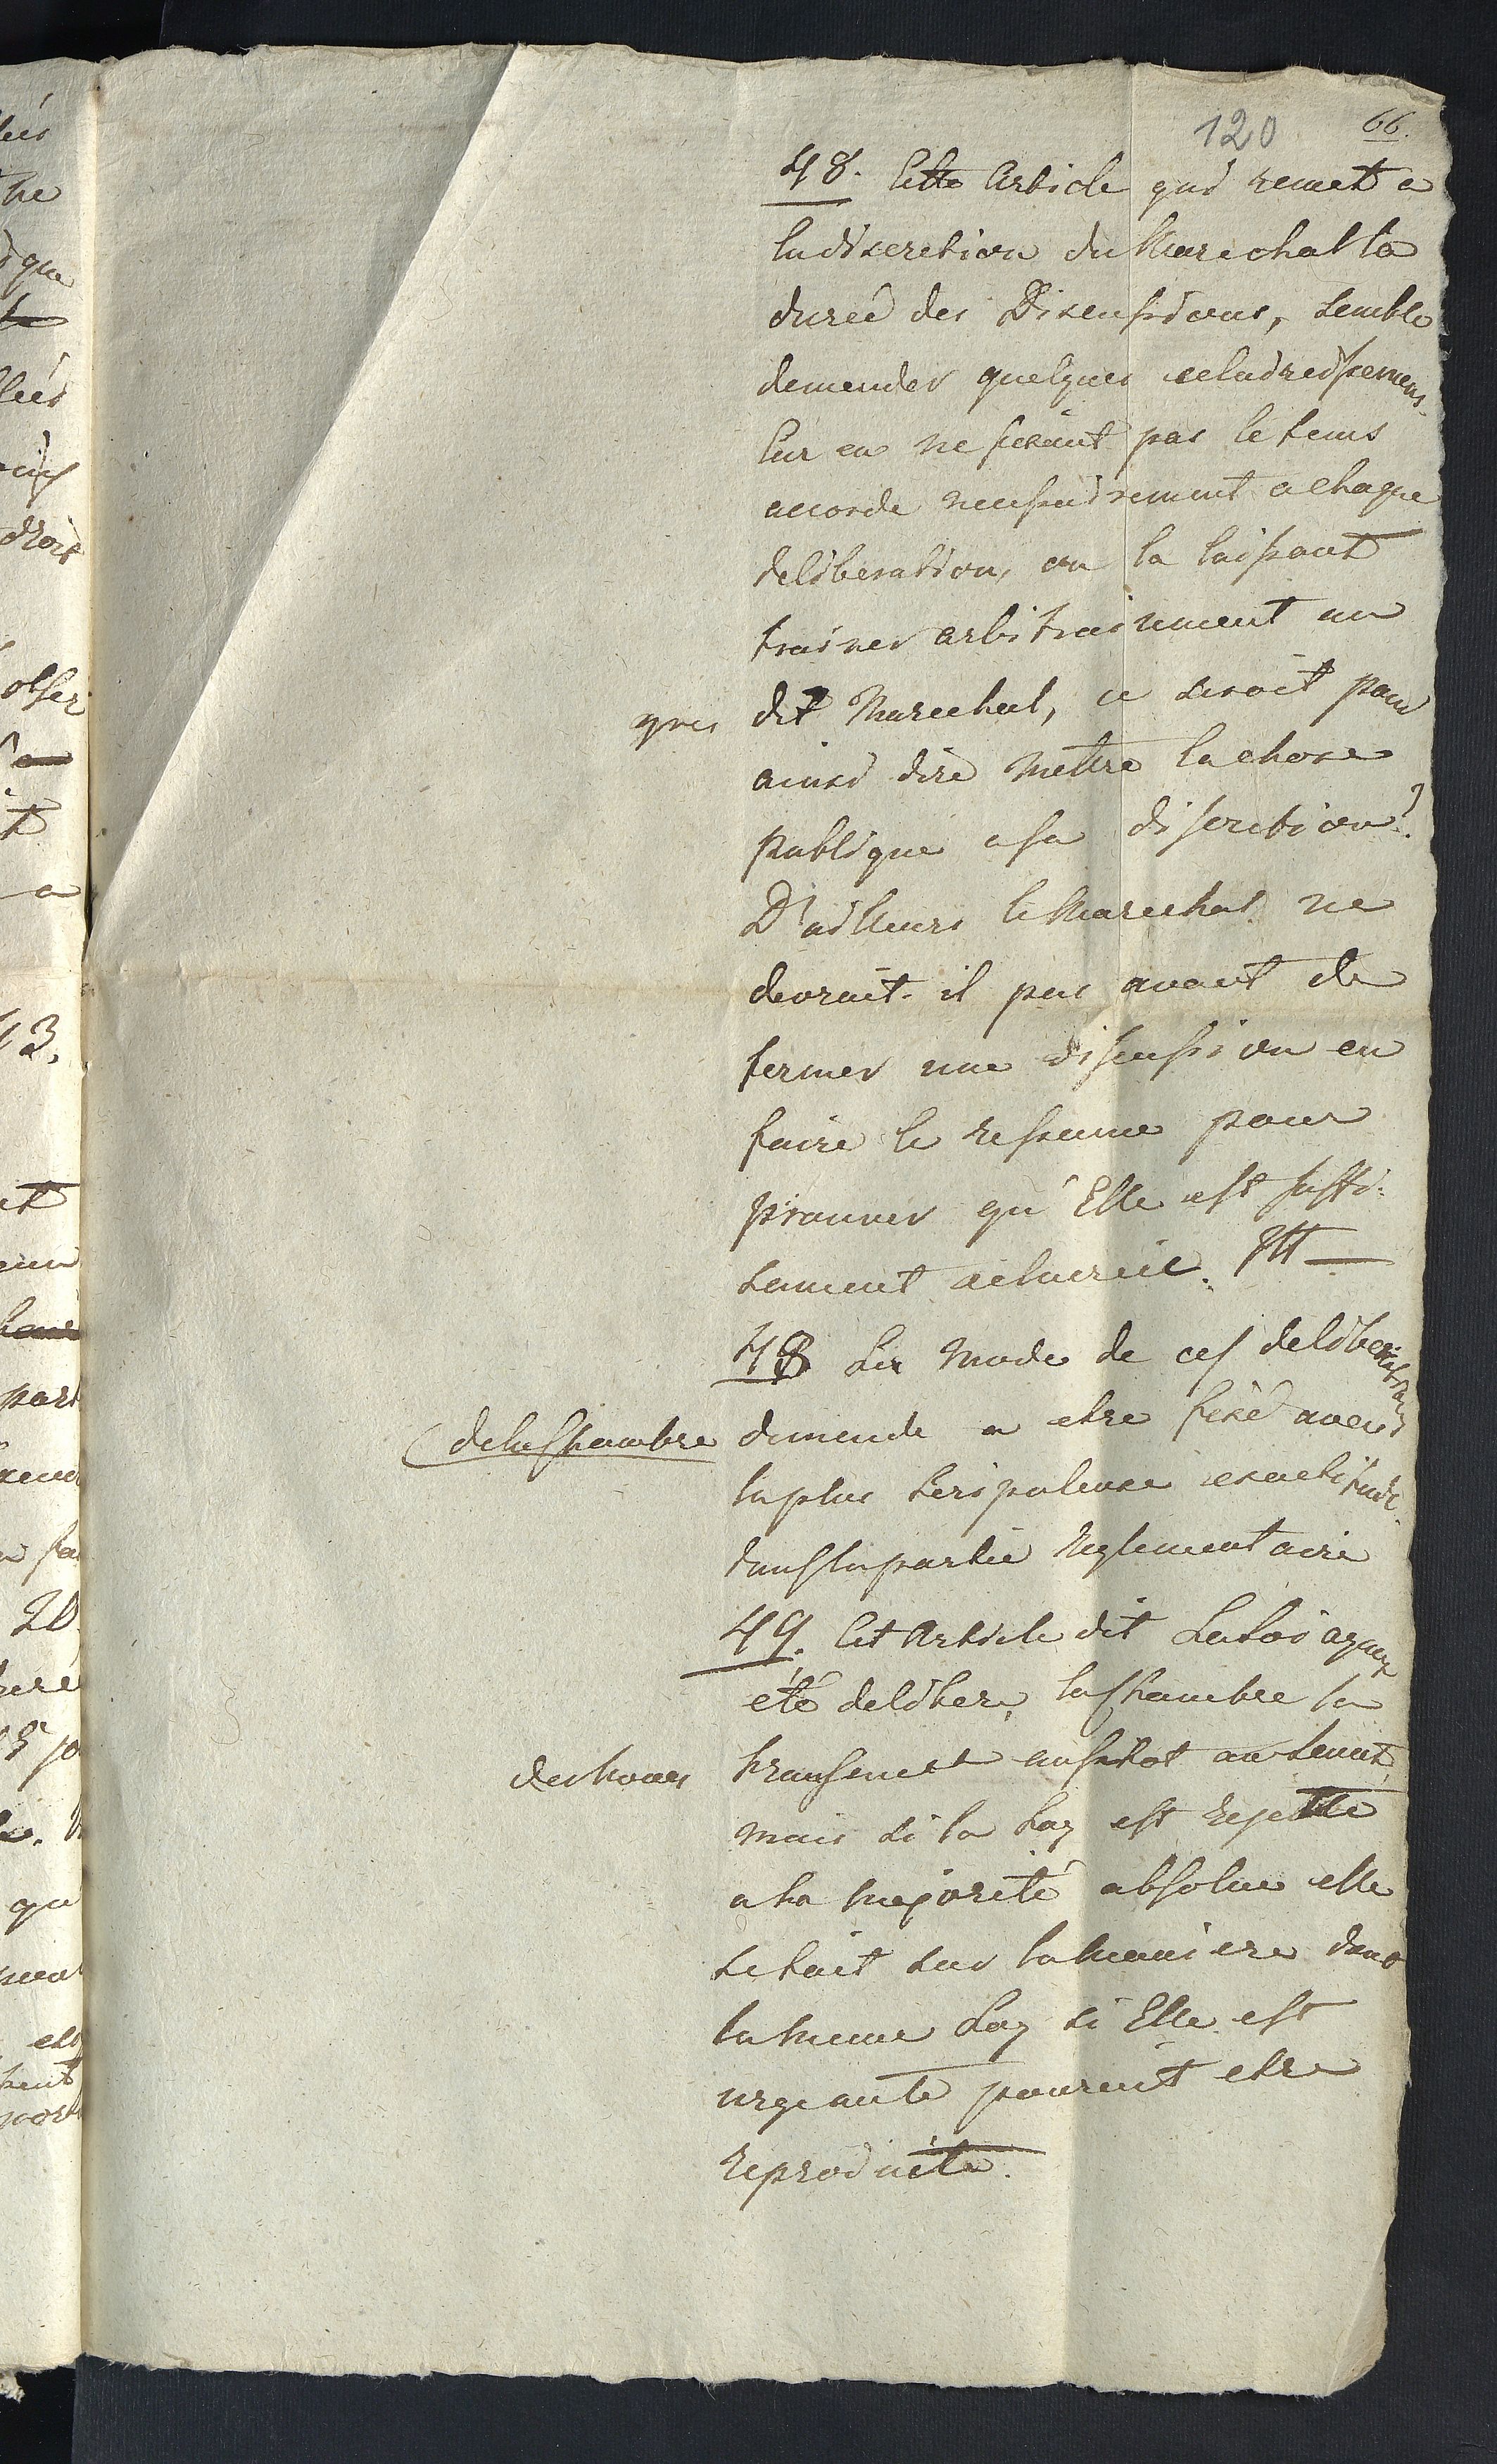 120 66.
48. Cette Article qui remet a
la discretion du Marechal la
durée des Discussions, semble
demander quelques eclaircissemens.
Car en ne fixant pas le tems
accorde necessairement a chaque
deliberation, en la laissant
trainer arbitrairement au
gres dit Marechal, ce seroit pour
ainsi dire mettre la chose
publique a sa discretion?
D'ailleurs le Marechal ne
devrait-il pas avant de
fermer une discussion en
faire le ressume pour
prouver qu'Elle est suffi-
sament aclaircie.
48 Les Mode de ces deliberations
de la Chambre demende a etre fixé avec
la plus scrupuleuse exactitude
dans la partie Reglementaire
49. Cet Article dit La Loi ayant
été deliberé, la Chambre la
des Nonces transmet aussitot au Senat,
mais si la Loy est rejetté
a la majorité absolue elle
se tait sur la maniere dont
la meme Loy si Elle est
urgeante pouroit etre
reproduite.